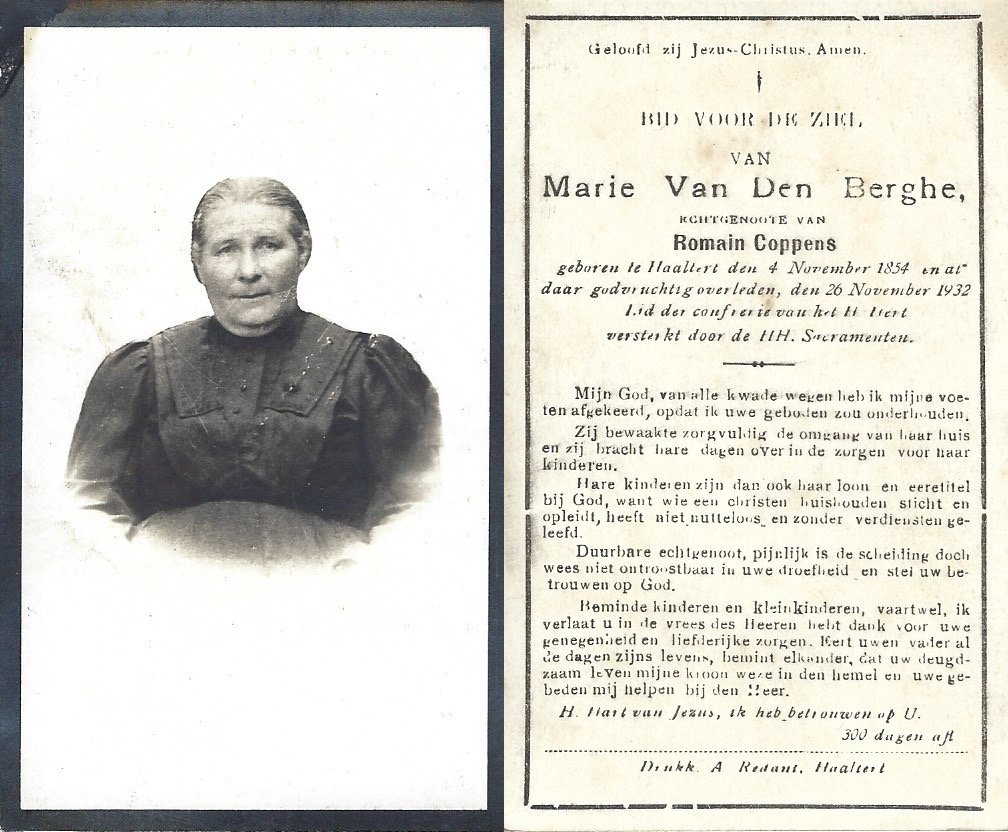 Geloofd zij Jezus-Christus. Amen.
BID VOOR DE ZIEL
VAN
Marie Van Den Berghe,
ECHTGENOOTE VAN
Romain Coppens
geboren te Haaltert den 4 November 1854 en al-
daar godvruchtig overleden, den 26 November 1932
Lid der confrerie van het H. Hert
versterkt door de HH. Sacramenten.
Mijn God, van alle kwade wegen heb ik mijne voe-
ten afgekeerd, opdat ik uwe geboden zou onderhouden.
Zij bewaakte zorgvuldig de omgang van haar huis
en zij bracht hare dagen over in de zorgen voor haar
kinderen.
Hare kinderen zijn dan ook haar loon en eeretitel
bij God, want wie een christen huishouden sticht en
opleidt, heeft niet nutteloos en zonder verdiensten ge-
leefd.
Duurbare echtgenoot, pijnlijk is de scheiding doch
wees niet ontroostbaar in uwe droefheid en stel uw be-
trouwen op God.
Beminde kinderen en kleinkinderen, vaartwel, ik
verlaat u in de vrees des Heeren hebt dank voor uwe
genegenheid en liefderijke zorgen. Eert uwen vader al
de dagen zijns levens, bemint elkander, dat uw deugd-
zaam leven mijne kroon weze in den hemel en uwe ge-
beden mij helpen bij den Heer.
H. Hart van Jezus, ik heb betrouwen op U.
300 dagen afl
Drukk. A Redant, Haaltert